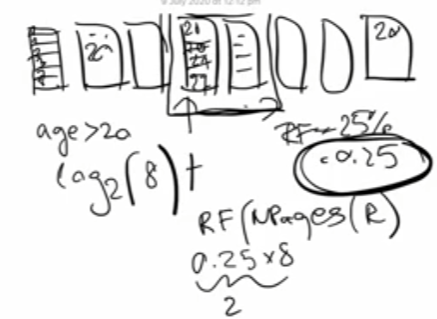 9 July 2020 at 12:12 pm
20
21
20
age>20
RF = 25%
=0.25
log2(8)+
RF(NPages(R)
0.25x8
2